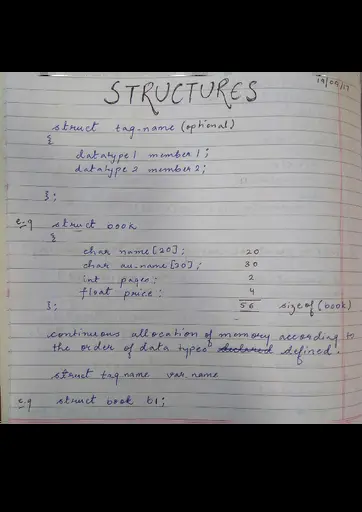 19/09/17
STRUCTURES
struct tag-name (optional)
{
datatype1 member1;
datatype2 member2;
};
e.g struct book
{
char name[20]; 20
char au-name[30]; 30
int pages; 2
float price; 4
}; 56 sizeof(book)
continuous allocation of memory according to
the order of data types declared defined.
struct tag.name var.name
e.g struct book b1;